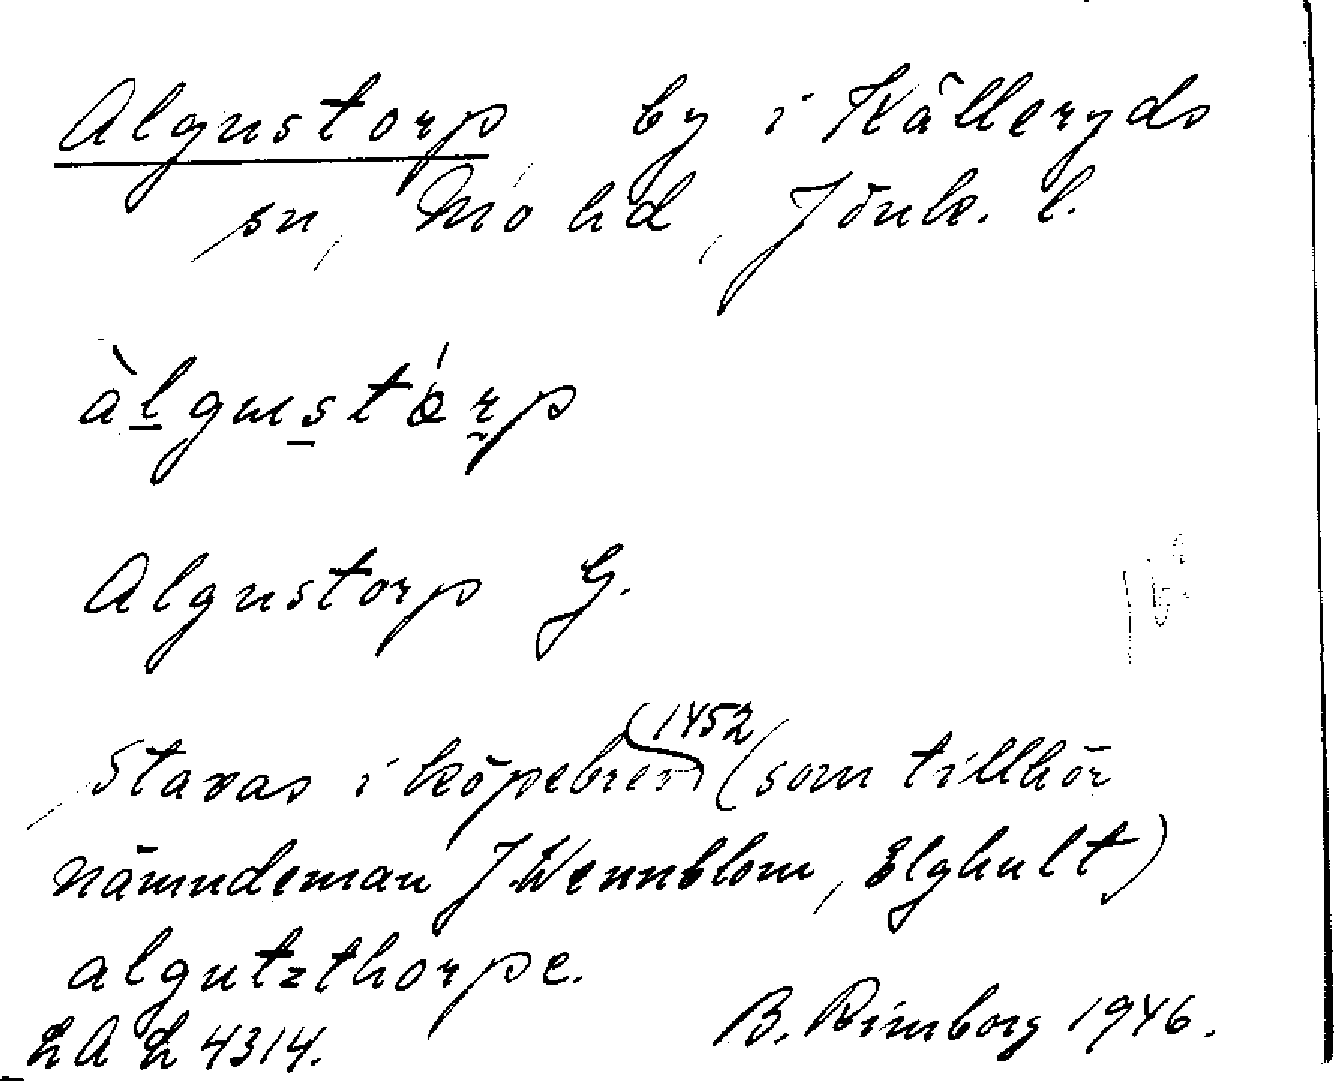 Algustorp by i Kålleryds
sn, Mo hd, Jönk. l.
àlgustórp
Algustorp G.
Stavas i köpebrev 1452 (som tillhör
nämndeman J. Wennblom, Elghult)
algutzthorpe.
LAL 4314.
B. Rimborg 1946.